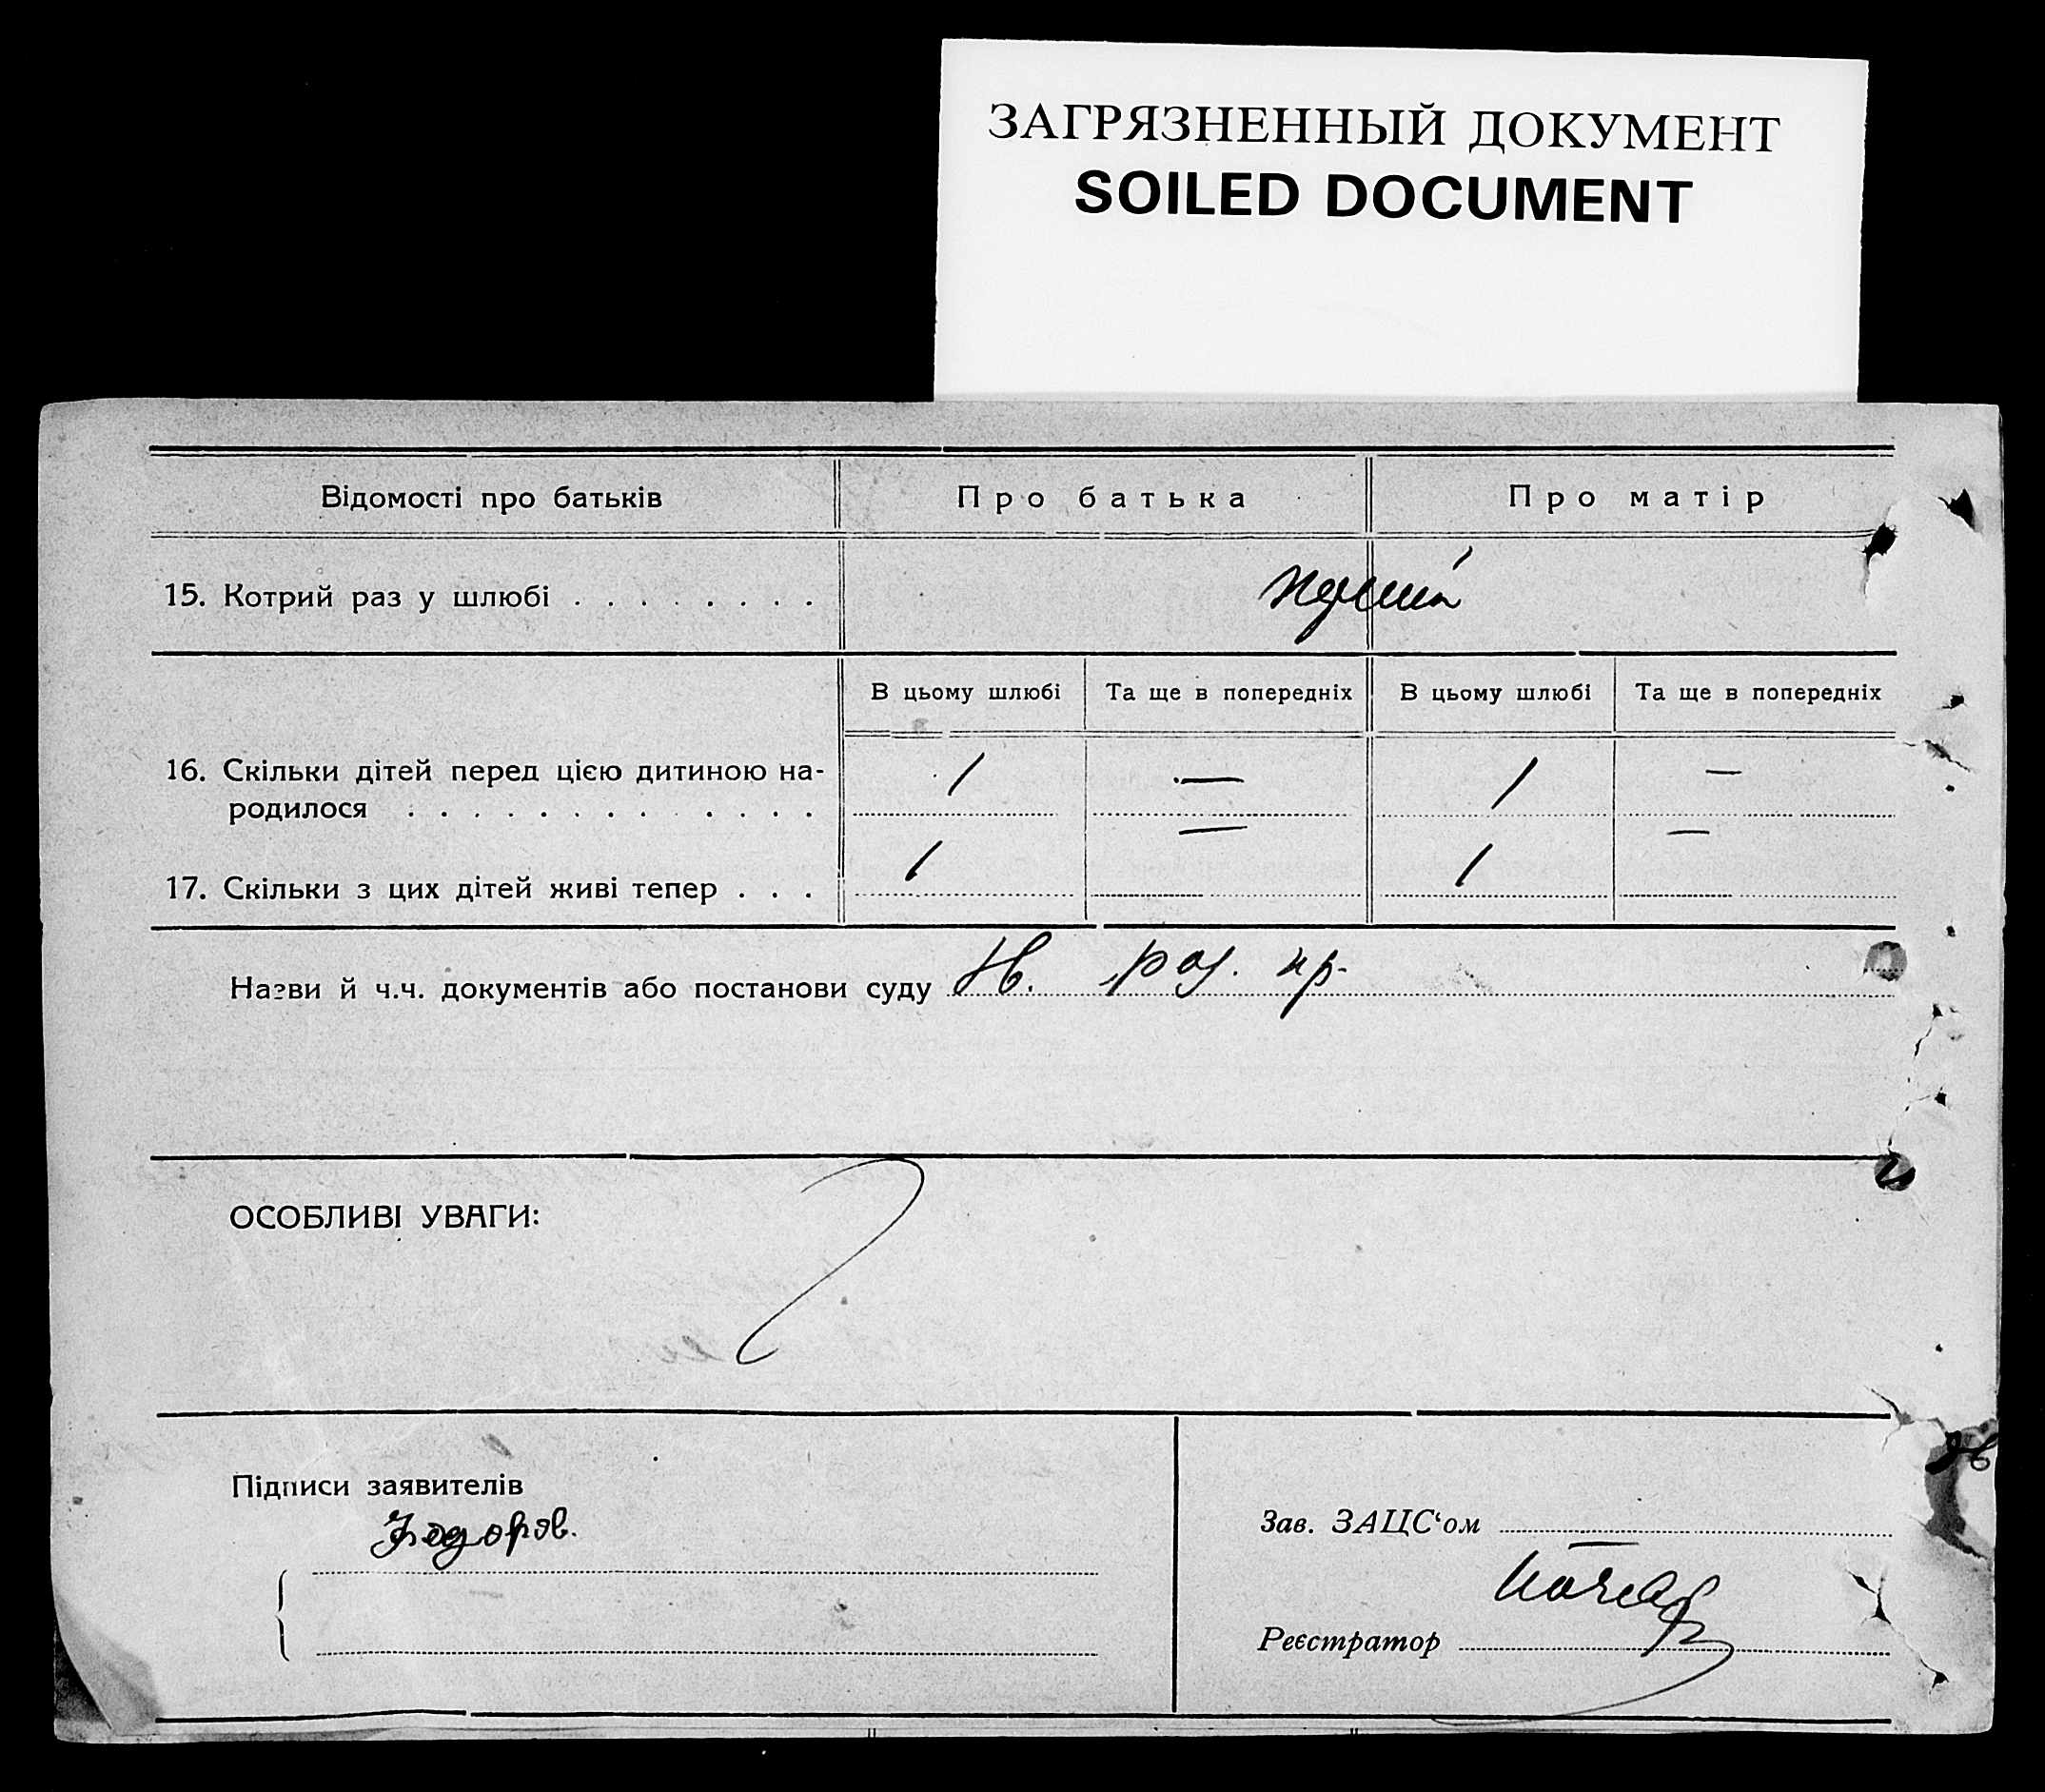 ЗАГРЯЗНЕННЫЙ ДОКУМЕНТ
SOILED DOCUMENT
Відомості про батьків Про батька Про матір
15. Котрий раз у шлюбі . . . . . . . .
В цьому шлюбі Та ще в попередніх В цьому шлюбі Та ще в попередніх
16. Скільки дітей перед цією дитиною на-
родилося . . . . . . . . . . . . 1 — 1 —
17. Скільки з цих дітей живі тепер . . . 1 — 1 —
Назви й ч.ч. документів або постанови суду
ОСОБЛИВІ УВАГИ:
Підписи заявителів
Федоров.
Зав. ЗАЦС‘ом
Реєстратор